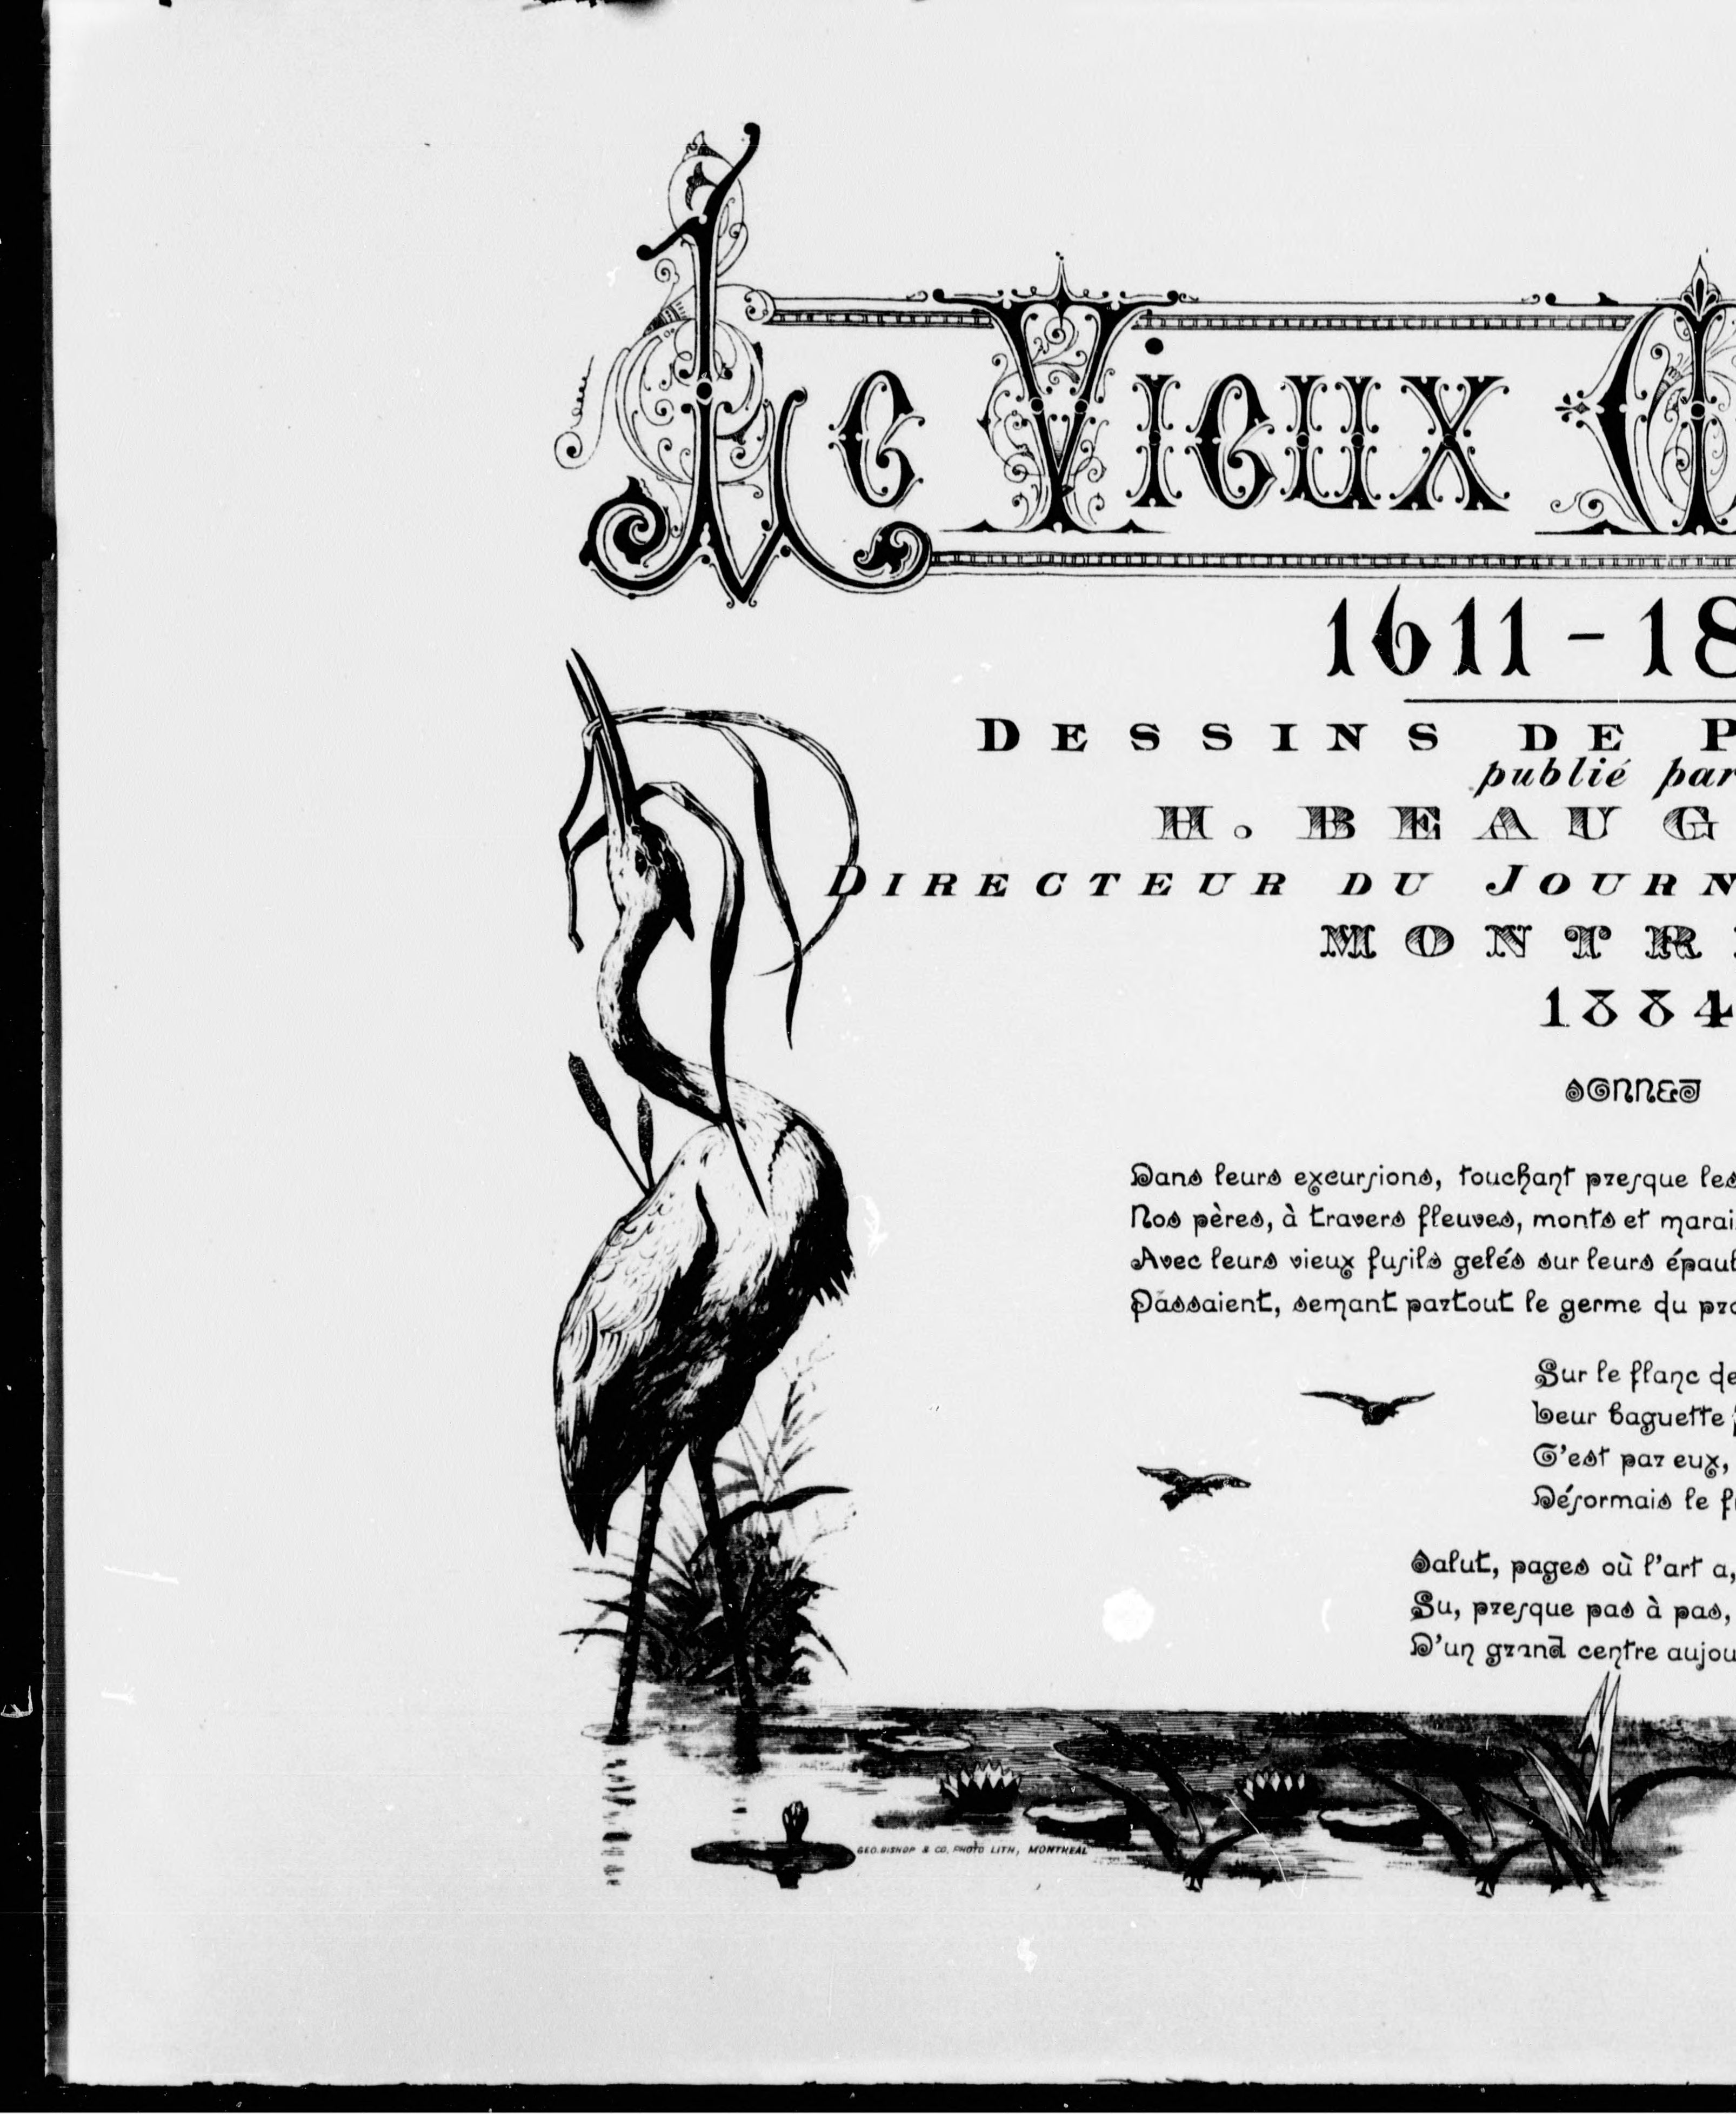 Le Vieux M
1611 - 18
DESSINS DE P
publié par
H. BEAUG
DIRECTEUR DU JOURN
MONTR
1884
SONNET
Dans leurs excursions, touchant presque les
Nos pères, à travers fleuves, monts et marai
Avec leurs vieux fusils gelés sur leurs épaul
Passaient, semant partout le germe du pro
Sur le flanc de
Leur baguette
C'est par eux,
Désormais le f
Salut, pages où l'art a,
Su, presque pas à pas,
D'un grand centre aujou
GEO. BISHOP & CO. PHOTO LITH, MONTREAL